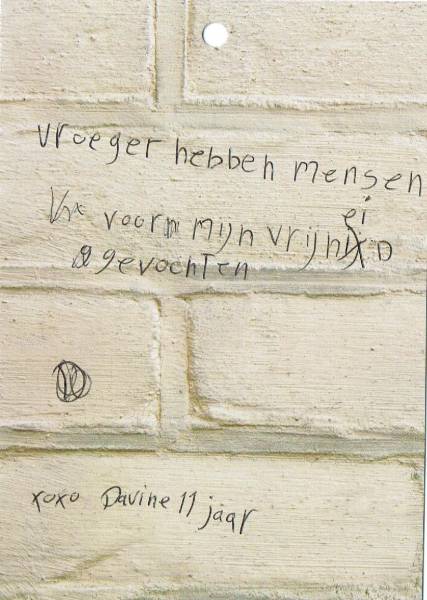 vroeger hebben mensen
voor mijn vrijheid
gevochten
xoxo Davine 11 jaar